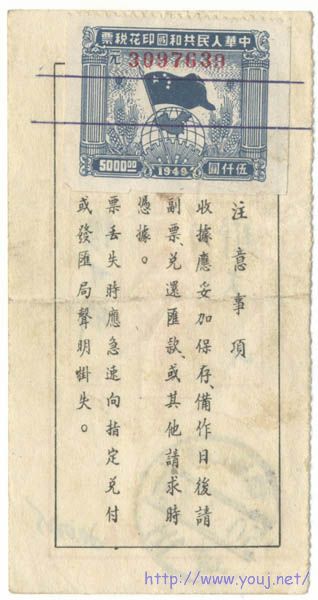 中華人民共和國印花稅票
3097639
5000.00
1949
伍仟圓
注意事項
收據應妥加保存、備作日後請
副票、兌還匯款、或其他請求時
憑據。
票丟失時應急速向指定兌付
或發匯局聲明掛失。
http://www.youj.net/